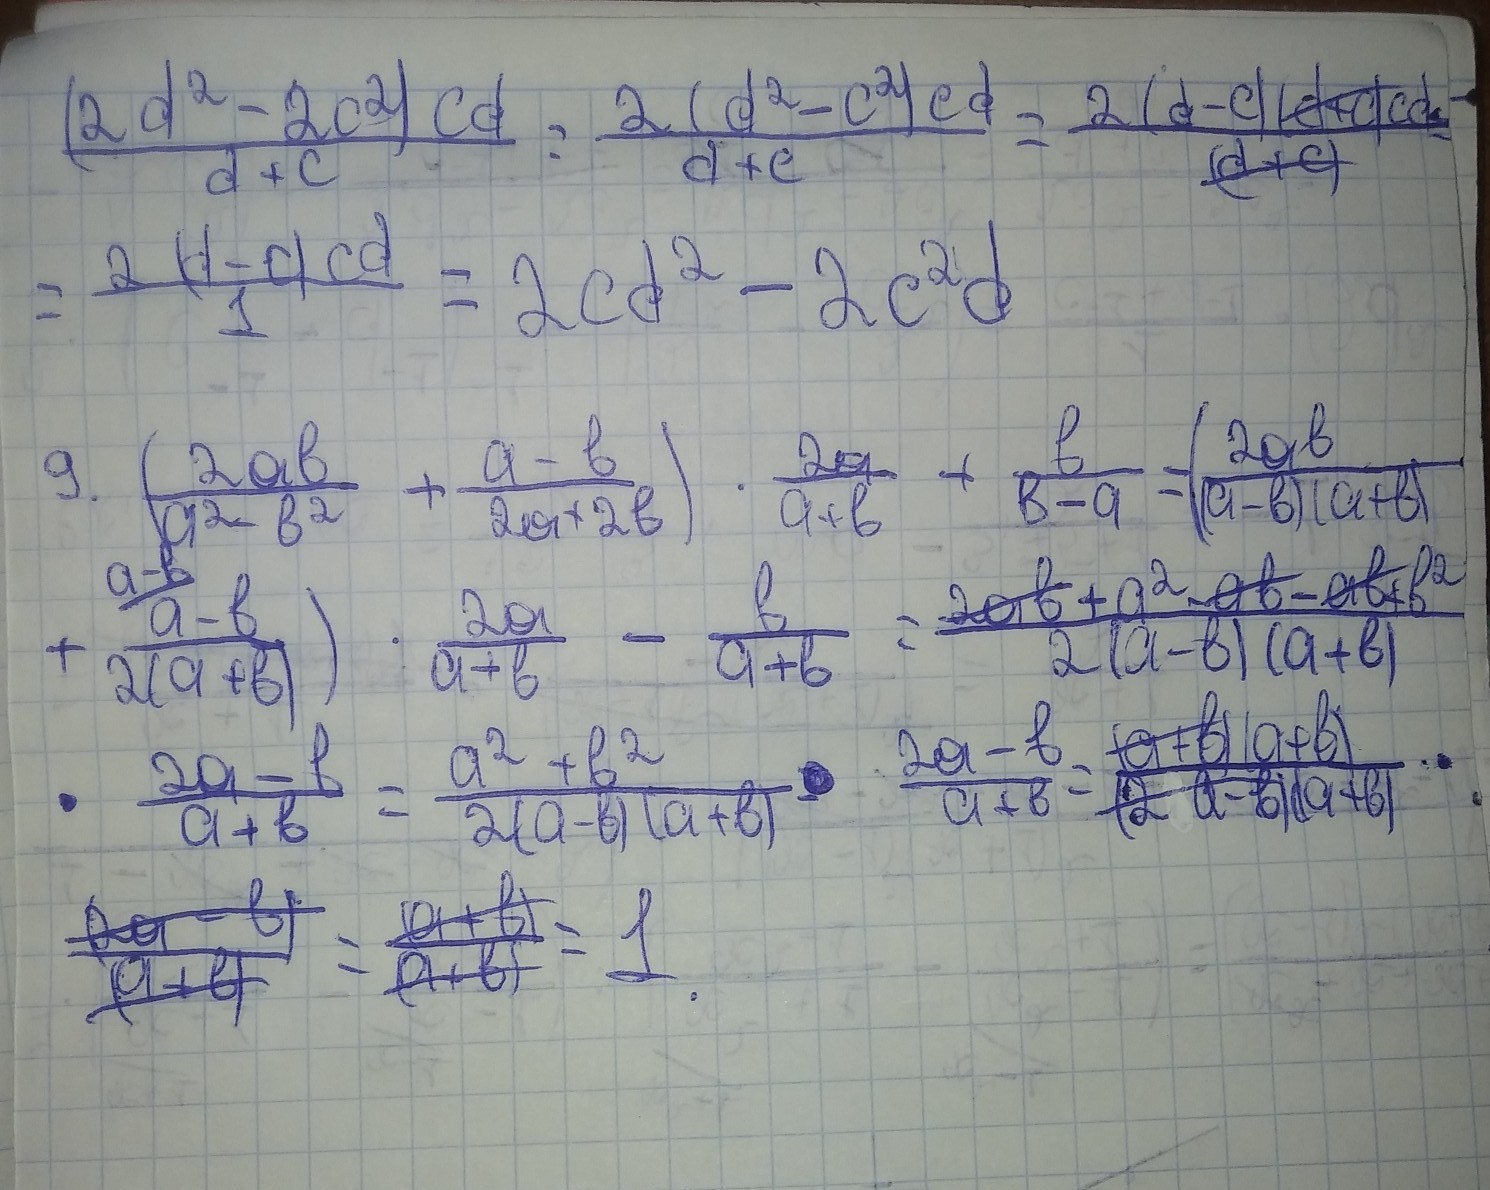 (2d² - 2c²) cd / d + c = 2 (d² - c²) cd / d + c = 2 (d - c) (d + c) cd / (d + c) =
= 2 (d - c) cd / 1 = 2cd² - 2c²d
9. (2ab / a² - b² + a - b / 2a + 2b) · 2a / a + b + b / b - a = (2ab / (a - b) (a + b)
a - b
+ a - b / 2(a + b)) · 2a / a + b - b / a + b = 2ab + a² - ab - ab + b² / 2 (a - b) (a + b)
· 2a - b / a + b = a² + b² / 2(a - b) (a + b) · 2a - b / a + b = (a + b) (a + b) / (2 a - b) (a + b) ·
(2a - b) / (a + b) = (a + b) / (a + b) = 1.